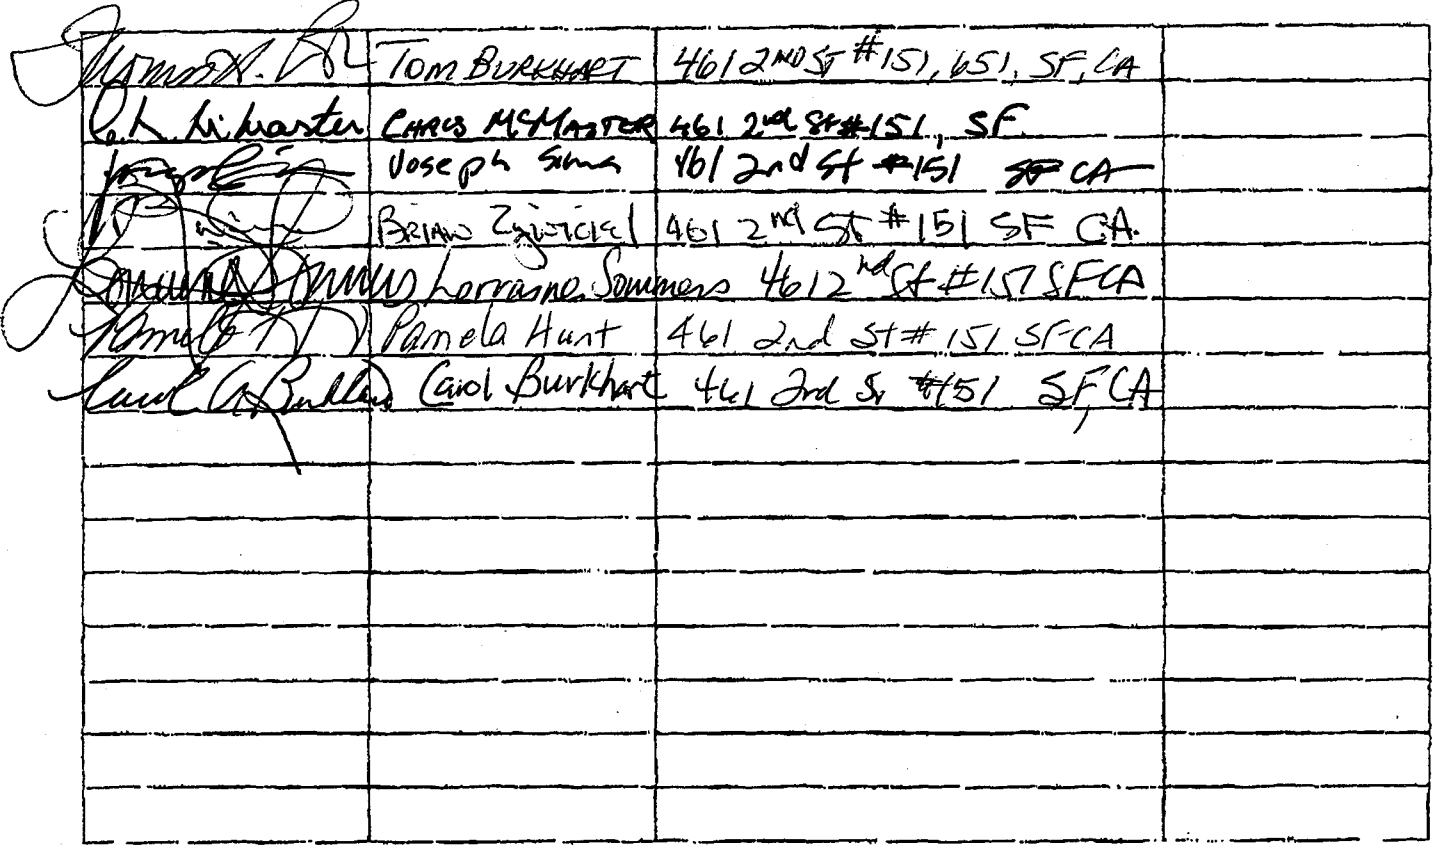 Thomas A. TOM BURKHART 461 2ND ST #151, 651, SF, CA
CHRIS MCMASTER 461 2nd St #151, SF.
Joseph 461 2nd St #151 SF CA
BRIAN 461 2nd ST #151 SF CA.
Lorraine Sommers 461 2nd St #151 SF CA
Pamela Hunt 461 2nd St # 151 SF CA
Carol A. Burkhart Carol Burkhart 461 2nd St #151 SF, CA